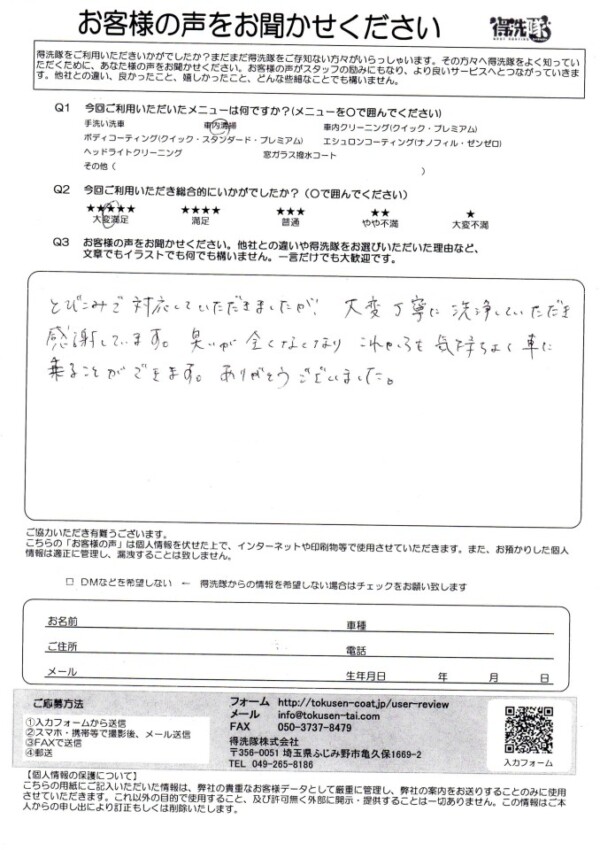 お客様の声をお聞かせください
得洗隊
得洗隊をご利用いただきいかがでしたか？まだまだ得洗隊をご存知ない方々がいらっしゃいます。その方々へ得洗隊をよく知ってい
ただくために、あなた様の声をお聞かせください。お客様の声がスタッフの励みにもなり、より良いサービスへとつながっていきま
す。他社との違い、良かったこと、嬉しかったこと、どんな些細なことでも構いません。
Q1 今回ご利用いただいたメニューは何ですか？(メニューを○で囲んでください)
手洗い洗車 車内清掃 車内クリーニング(クイック・プレミアム)
ボディコーティング(クイック・スタンダード・プレミアム) エシュロンコーティング(ナノフィル・ゼンゼロ)
ヘッドライトクリーニング 窓ガラス撥水コート
その他（ ）
Q2 今回ご利用いただき総合的にいかがでしたか？（○で囲んでください）
★★★★★ ★★★★ ★★★ ★★ ★
大変満足 満足 普通 やや不満 大変不満
Q3 お客様の声をお聞かせください。他社との違いや得洗隊をお選びいただいた理由など、
文章でもイラストでも何でも構いません。一言だけでも大歓迎です。
とびこみで対応していただきましたが、大変丁寧に洗浄していただき
感謝しています。臭いが全くなくなり これからも気持ちよく車に
乗ることができます。ありがとうございました。
ご協力いただき有難うございます。
こちらの「お客様の声」は個人情報を伏せた上で、インターネットや印刷物等で使用させていただきます。また、お預かりした個人
情報は適正に管理し、漏洩することは致しません。
□ DMなどを希望しない ← 得洗隊からの情報を希望しない場合はチェックをお願い致します
お名前 車種
ご住所 電話
メール 生年月日 年 月 日
ご応募方法
①入力フォームから送信
②スマホ・携帯等で撮影後、メール送信
③FAXで送信
④郵送
フォーム http://tokusen-coat.jp/user-review
メール info@tokusen-tai.com
FAX 050-3737-8479
得洗隊株式会社
〒356-0051 埼玉県ふじみ野市亀久保1669-2
TEL 049-265-8186
入力フォーム
【個人情報の保護について】
こちらの用紙にご記入いただいた情報は、弊社の貴重なお客様データとして厳重に管理し、弊社の案内をお送りすることのみに使用
させていただきます。これ以外の目的で使用すること、及び許可無く外部に開示・提供することは一切ありません。この情報はご本
人からの申し出により訂正もしくは削除いたします。